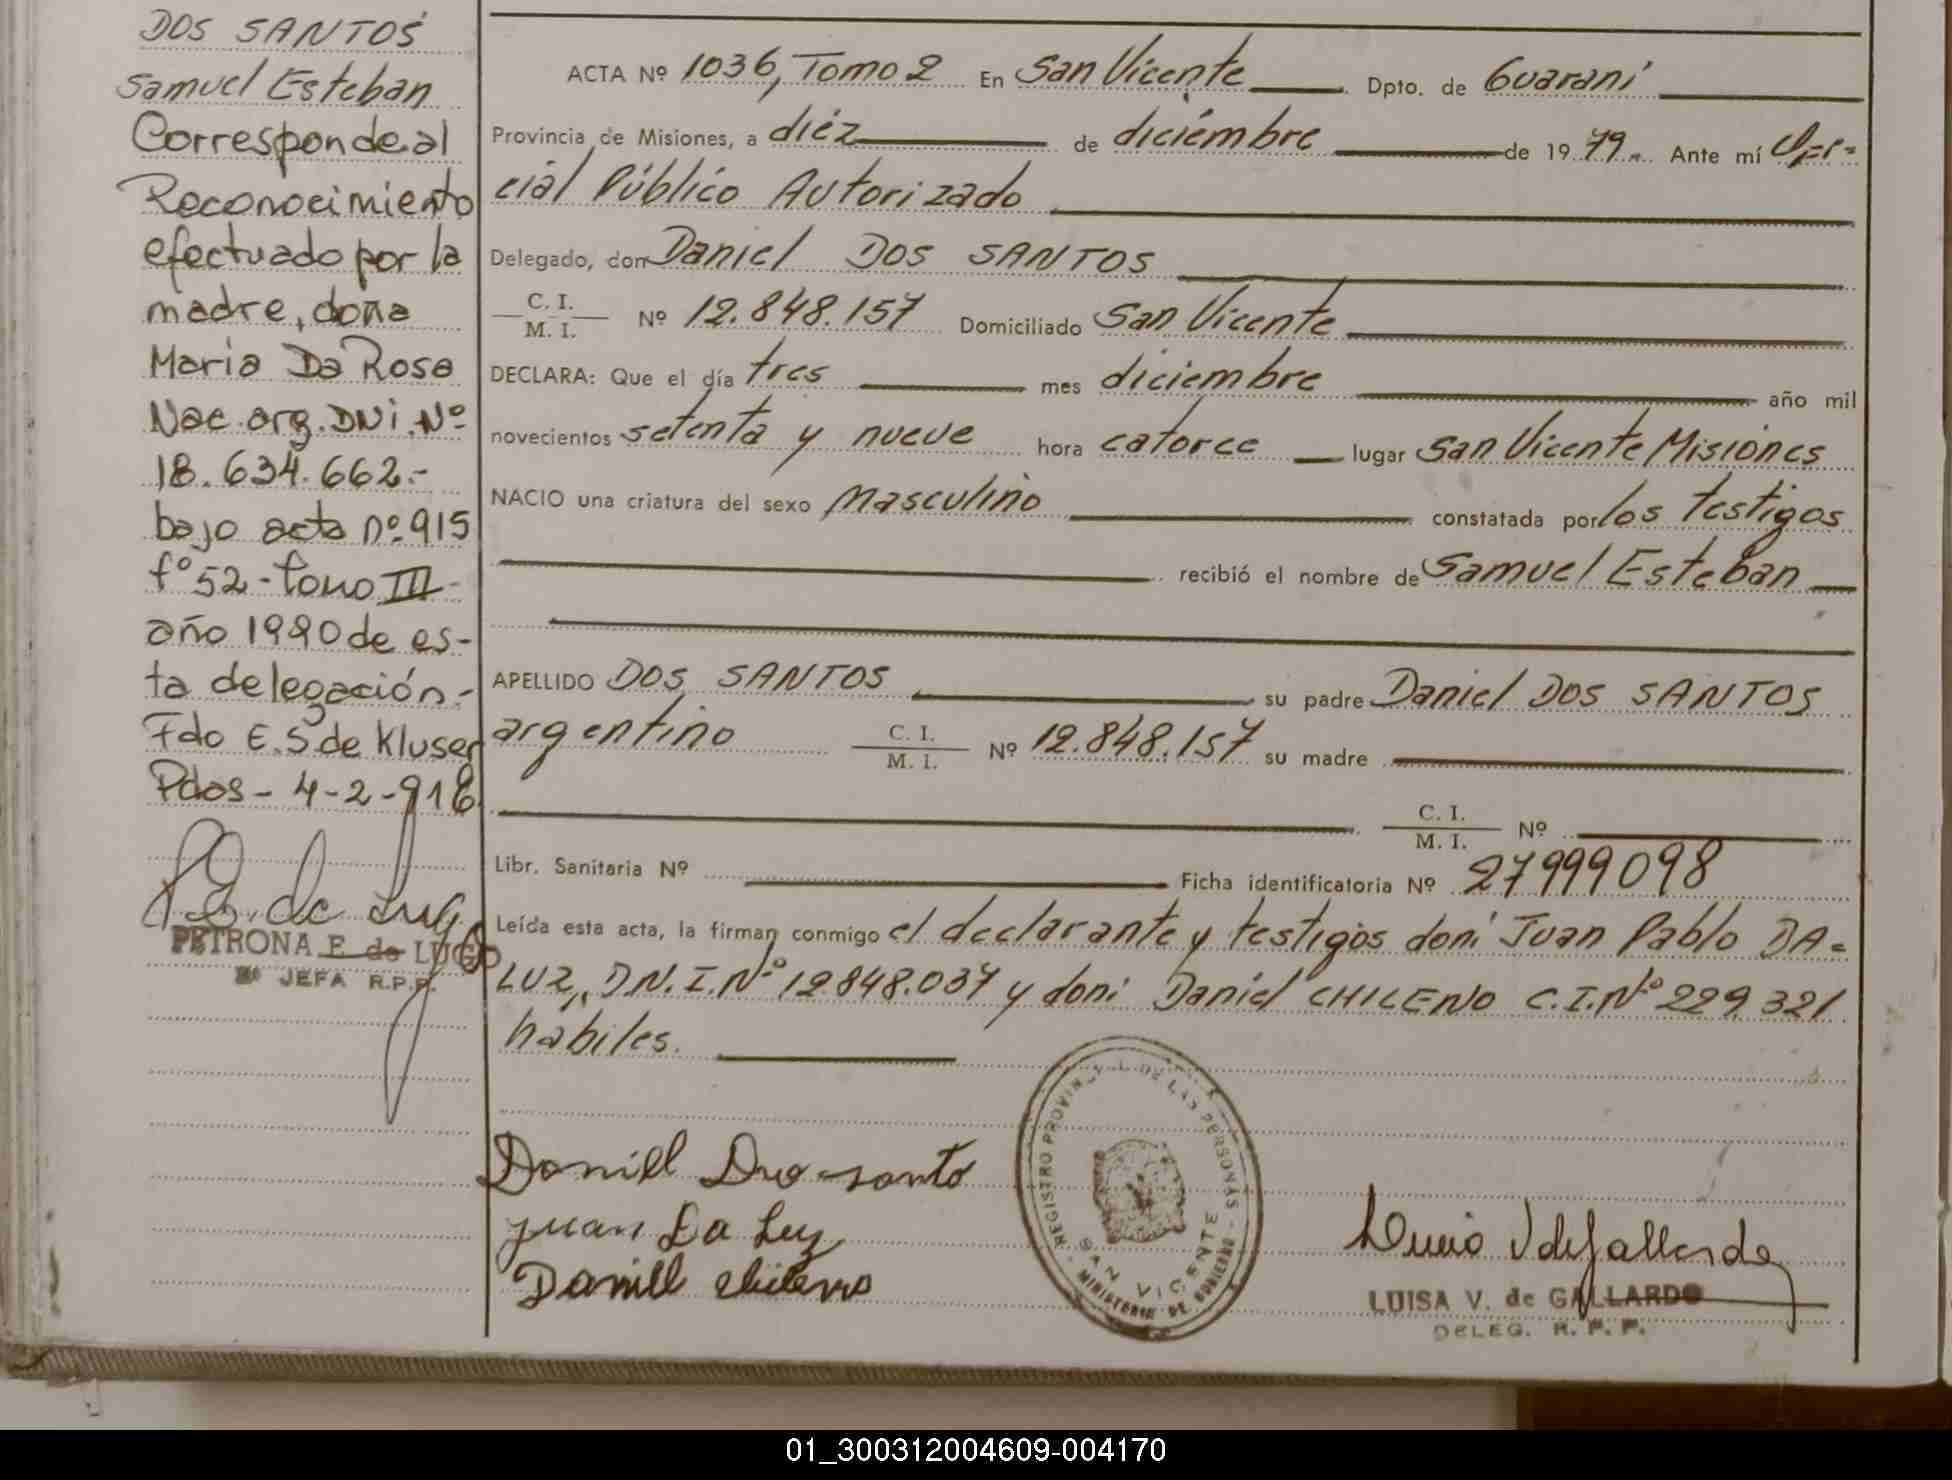 DOS SANTOS
Samuel Esteban
Corresponde al
Reconocimiento
efectuado por la
madre, doña
Maria Da Rosa
Nac. arg. DNI. Nº
18.634.662.-
bajo acta nº 915
fº 52 - Tomo III -
año 1990 de es-
ta delegación.-
Fdo E.S de Kluser
Pdos - 4-2-
P E. de Lugo
PETRONA E. de LUGO
JEFA R.P.P.
ACTA Nº 1036, Tomo 2 En San Vicente Dpto. de Guaraní
Provincia de Misiones, a diéz de diciémbre de 1979.. Ante mí Ofi-
ciál Público Autorizado
Delegado, don Daniel DOS SANTOS
C. I.
M. I. Nº 12.848.157 Domiciliado San Vicente
DECLARA: Que el día tres mes diciembre año mil
novecientos setenta y nueve hora catorce lugar San Vicente Misiones
NACIO una criatura del sexo Masculino constatada por los testigos
recibió el nombre de Samuel Esteban
APELLIDO DOS SANTOS su padre Daniel DOS SANTOS
argentino C. I.
M. I. Nº 12.848.157 su madre
C. I.
M. I. Nº
Libr. Sanitaria Nº Ficha identificatoria Nº 27999098
Leída esta acta, la firman conmigo el declarante y testigos doni Juan Pablo DA-
LUZ, D.N.I.Nº 12848.037 y doni Daniel CHILENO C.I.Nº 229.321
habiles.
Daniel Dos santo
Juan Da Luz
Daniel chileno
REGISTRO PROVINCIAL DE LAS PERSONAS
SAN VICENTE
MINISTERIO DE GOBIERNO
Luisa V de Gallardo
LUISA V. de GALLARDO
DELEG. R. P. P.
01_300312004609-004170